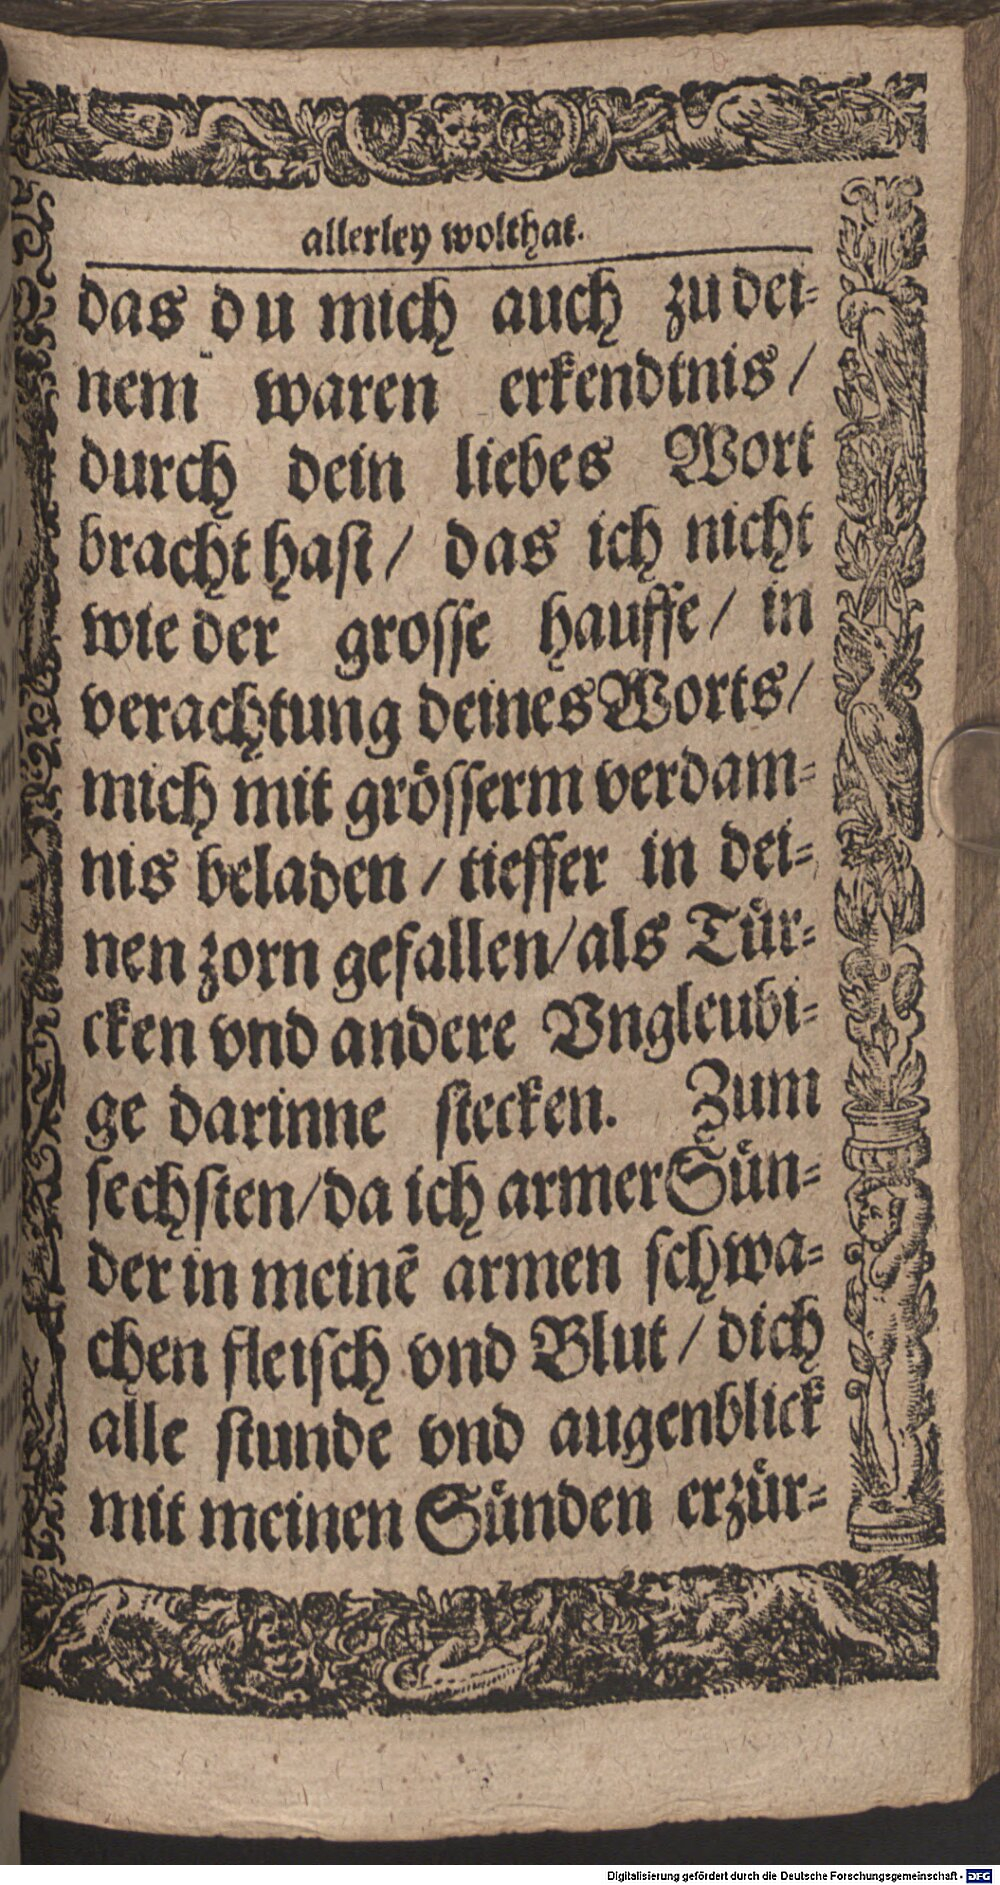 allerley wolthat.
das du mich auch zu dei-
nem waren erkendtnis/
durch dein liebes Wort
bracht hast/ das ich nicht
wie der grosse hauffe/ in
verachtung deines Worts/
mich mit grösserm verdam-
nis beladen/ tieffer in dei-
nen zorn gefallen/ als Tür-
cken vnd andere Vngleubi-
ge darinne stecken. Zum
sechsten/ da ich armer Sün-
der in meinẽ armen schwa-
chen fleisch vnd Blut/ dich
alle stunde vnd augenblick
mit meinen Sünden erzür-
Digitalisierung gefördert durch die Deutsche Forschungsgemeinschaft - DFG